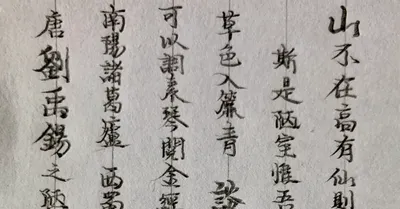 山不在高有仙則
斯是陋室惟吾
草色入簾青 談
可以調素琴閱金經
南陽諸葛廬 西蜀
唐劉禹錫之陋